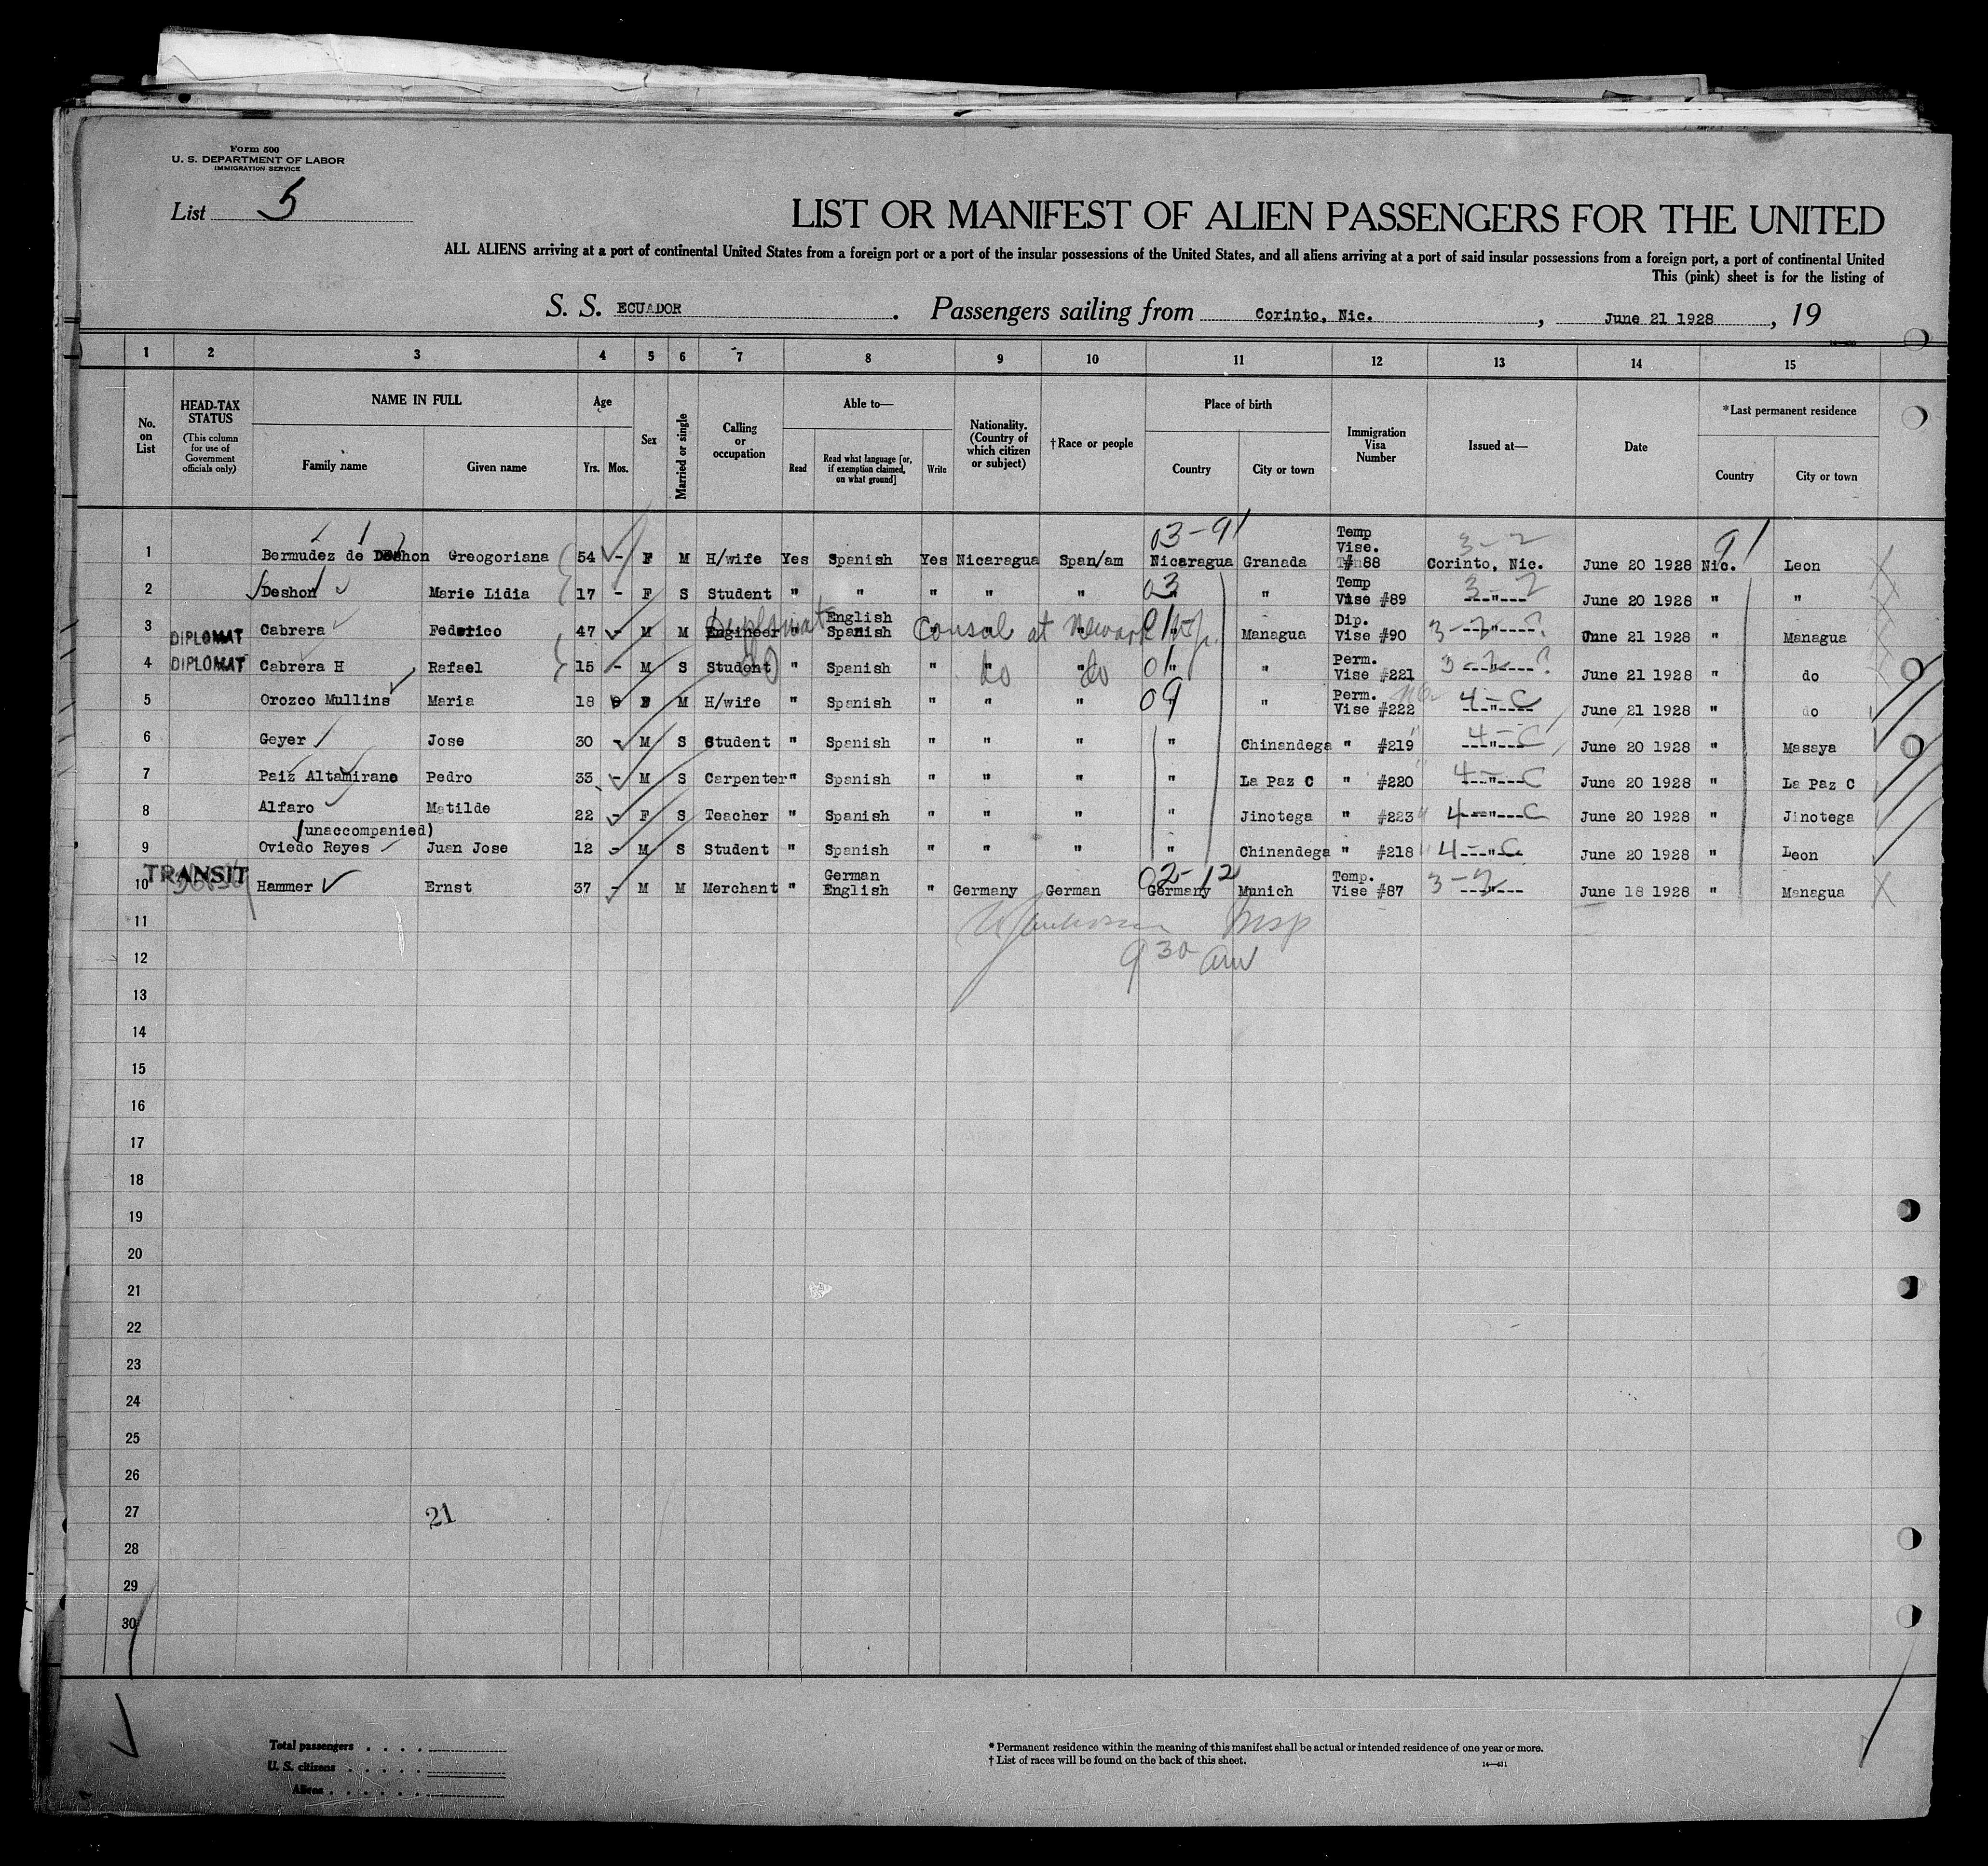 Form 500
U. S. DEPARTMENT OF LABOR
IMMIGRATION SERVICE
List 5
LIST OR MANIFEST OF ALIEN PASSENGERS FOR THE UNITED
ALL ALIENS arriving at a port of continental United States from a foreign port or a port of the insular possessions of the United States, and all aliens arriving at a port of said insular possessions from a foreign port, a port of continental United
This (pink) sheet is for the listing of
S. S. ECUADOR. Passengers sailing from Corinto, Nic., June 21 1928, 19
1 2 3 4 5 6 7 8 9 10 11 12 13 14 15
No. on List
HEAD-TAX STATUS
(This column for use of Government officials only)
NAME IN FULL
Family name Given name
Age
Yrs. Mos.
Sex
Married or single
Calling or occupation
Able to—
Read Read what language [or, if exemption claimed, on what ground] Write
Nationality. (Country of which citizen or subject)
†Race or people
Place of birth
Country City or town
Immigration Visa Number
Issued at—
Date
*Last permanent residence
Country City or town
03-91
1 Bermudez de Deshon Greogoriana 54 - F M H/wife Yes Spanish Yes Nicaragua Span/am Nicaragua Granada Temp Vise. #88 3-2 Corinto, Nic. June 20 1928 Nic. 91 Leon
2 Deshon Marie Lidia 17 - F S Student " " " " " 03 " Temp Vise #89 3-2 ---"--- June 20 1928 " "
3 DIPLOMAT Cabrera Federico 47 - M M Engineer Diplomat " English Spanish " Consul at Newark N.J. 01 " Managua Dip. Vise #90 3-2 ---"---? June 21 1928 " Managua
4 DIPLOMAT Cabrera H Rafael 15 - M S Student do " Spanish " " do " do 01 " " Perm. Vise #221 3-2 ---"---? June 21 1928 " do
5 Orozco Mullins Maria 18 F M H/wife " Spanish " " " 09 " Perm. Vise #222 4-C ---"--- June 21 1928 " do
6 Geyer Jose 30 - M S Student " Spanish " " " " Chinandega " #219 4-C ---"--- June 20 1928 " Masaya
7 Paiz Altamirano Pedro 33 - M S Carpenter " Spanish " " " " La Paz C " #220 4-C ---"--- June 20 1928 " La Paz C
8 Alfaro Matilde 22 - F S Teacher " Spanish " " " " Jinotega " #223 4-C ---"--- June 20 1928 " Jinotega
(unaccompanied)
9 Oviedo Reyes Juan Jose 12 - M S Student " Spanish " " " " Chinandega " #218 4-C ---"--- June 20 1928 " Leon
TRANSIT
10 Hammer Ernst 37 - M M Merchant " German English " Germany German 02-12 Germany Munich Temp. Vise #87 3-2 ---"--- June 18 1928 " Managua
11 Insp
12 9 30 am
13
14
15
16
17
18
19
20
21
22
23
24
25
26
27 21
28
29
30
Total passengers . . . .
U. S. citizens . . . . .
Aliens . . . . . . .
* Permanent residence within the meaning of this manifest shall be actual or intended residence of one year or more.
† List of races will be found on the back of this sheet.
14—431